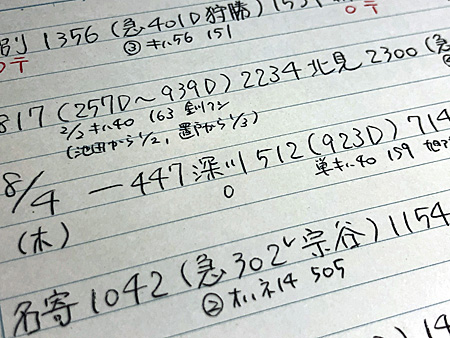 別 1356 (急401D狩勝) 153
〒 ③ キハ56 151 〒
817 (257D～939D) 2234 北見 2300 (急
2/3 キハ40 163 釧クシ
(池田から1/2, 置戸から1/3)
8/4 一447 深川 512 (923D) 714
(木) 0 単キハ40 159
名寄 1042 (急302レ宗谷) 1154
② オハネ14 505
14